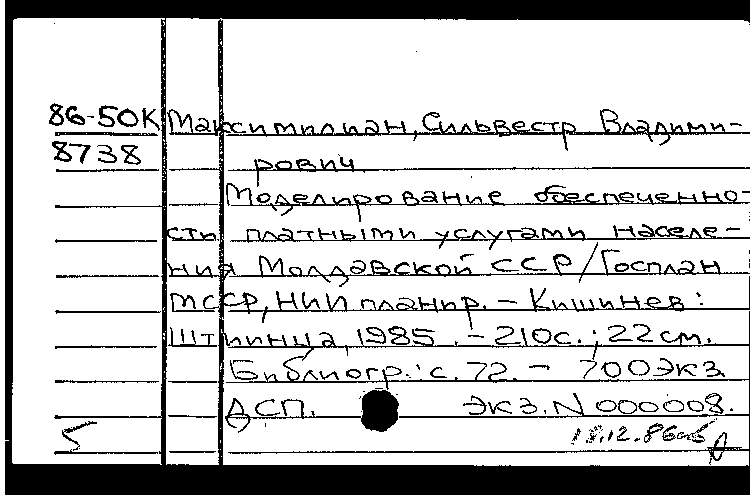 86-50К Максимилиан, Сильвестр Владими-
8738 рович
Моделирование обеспеченно-
сть платными услугами населе-
ния Молдавской ССР/Госплан
МССР, НИИ планир. - Кишинев:
Штиинца, 1985. - 210с.; 22см.
Библиогр.: с. 72. - 700экз.
ДСП. ЭКЗ. N 000008.
5 18.12.86